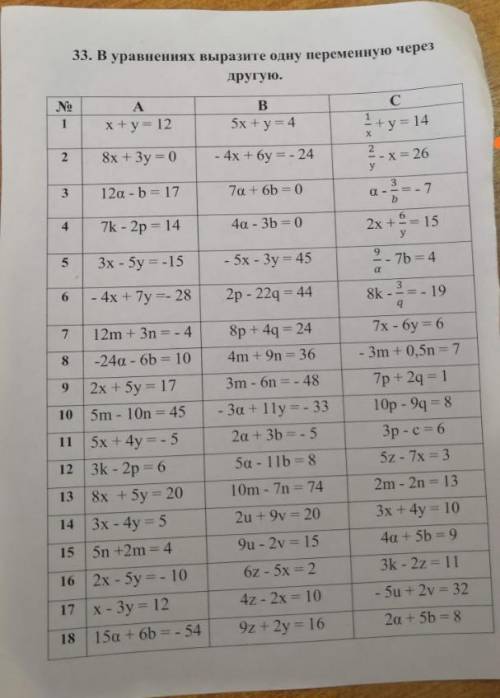 33. В уравнениях выразите одну переменную через
другую.
№ A B C
1 x + y = 12 5x + y = 4 1/x + y = 14
2 8x + 3y = 0 - 4x + 6y = - 24 2/y - x = 26
3 12a - b = 17 7a + 6b = 0 a - 3/b = - 7
4 7k - 2p = 14 4a - 3b = 0 2x + 6/y = 15
5 3x - 5y = -15 - 5x - 3y = 45 9/a - 7b = 4
6 - 4x + 7y =- 28 2p - 22q = 44 8k - 3/q = - 19
7 12m + 3n = - 4 8p + 4q = 24 7x - 6y = 6
8 -24a - 6b = 10 4m + 9n = 36 - 3m + 0,5n = 7
9 2x + 5y = 17 3m - 6n = - 48 7p + 2q = 1
10 5m - 10n = 45 - 3a + 11y = - 33 10p - 9q = 8
11 5x + 4y = - 5 2a + 3b = - 5 3p - c = 6
12 3k - 2p = 6 5a - 11b = 8 5z - 7x = 3
13 8x + 5y = 20 10m - 7n = 74 2m - 2n = 13
14 3x - 4y = 5 2u + 9v = 20 3x + 4y = 10
15 5n +2m = 4 9u - 2v = 15 4a + 5b = 9
16 2x - 5y = - 10 6z - 5x = 2 3k - 2z = 11
17 x - 3y = 12 4z - 2x = 10 - 5u + 2v = 32
18 15a + 6b = - 54 9z + 2y = 16 2a + 5b = 8